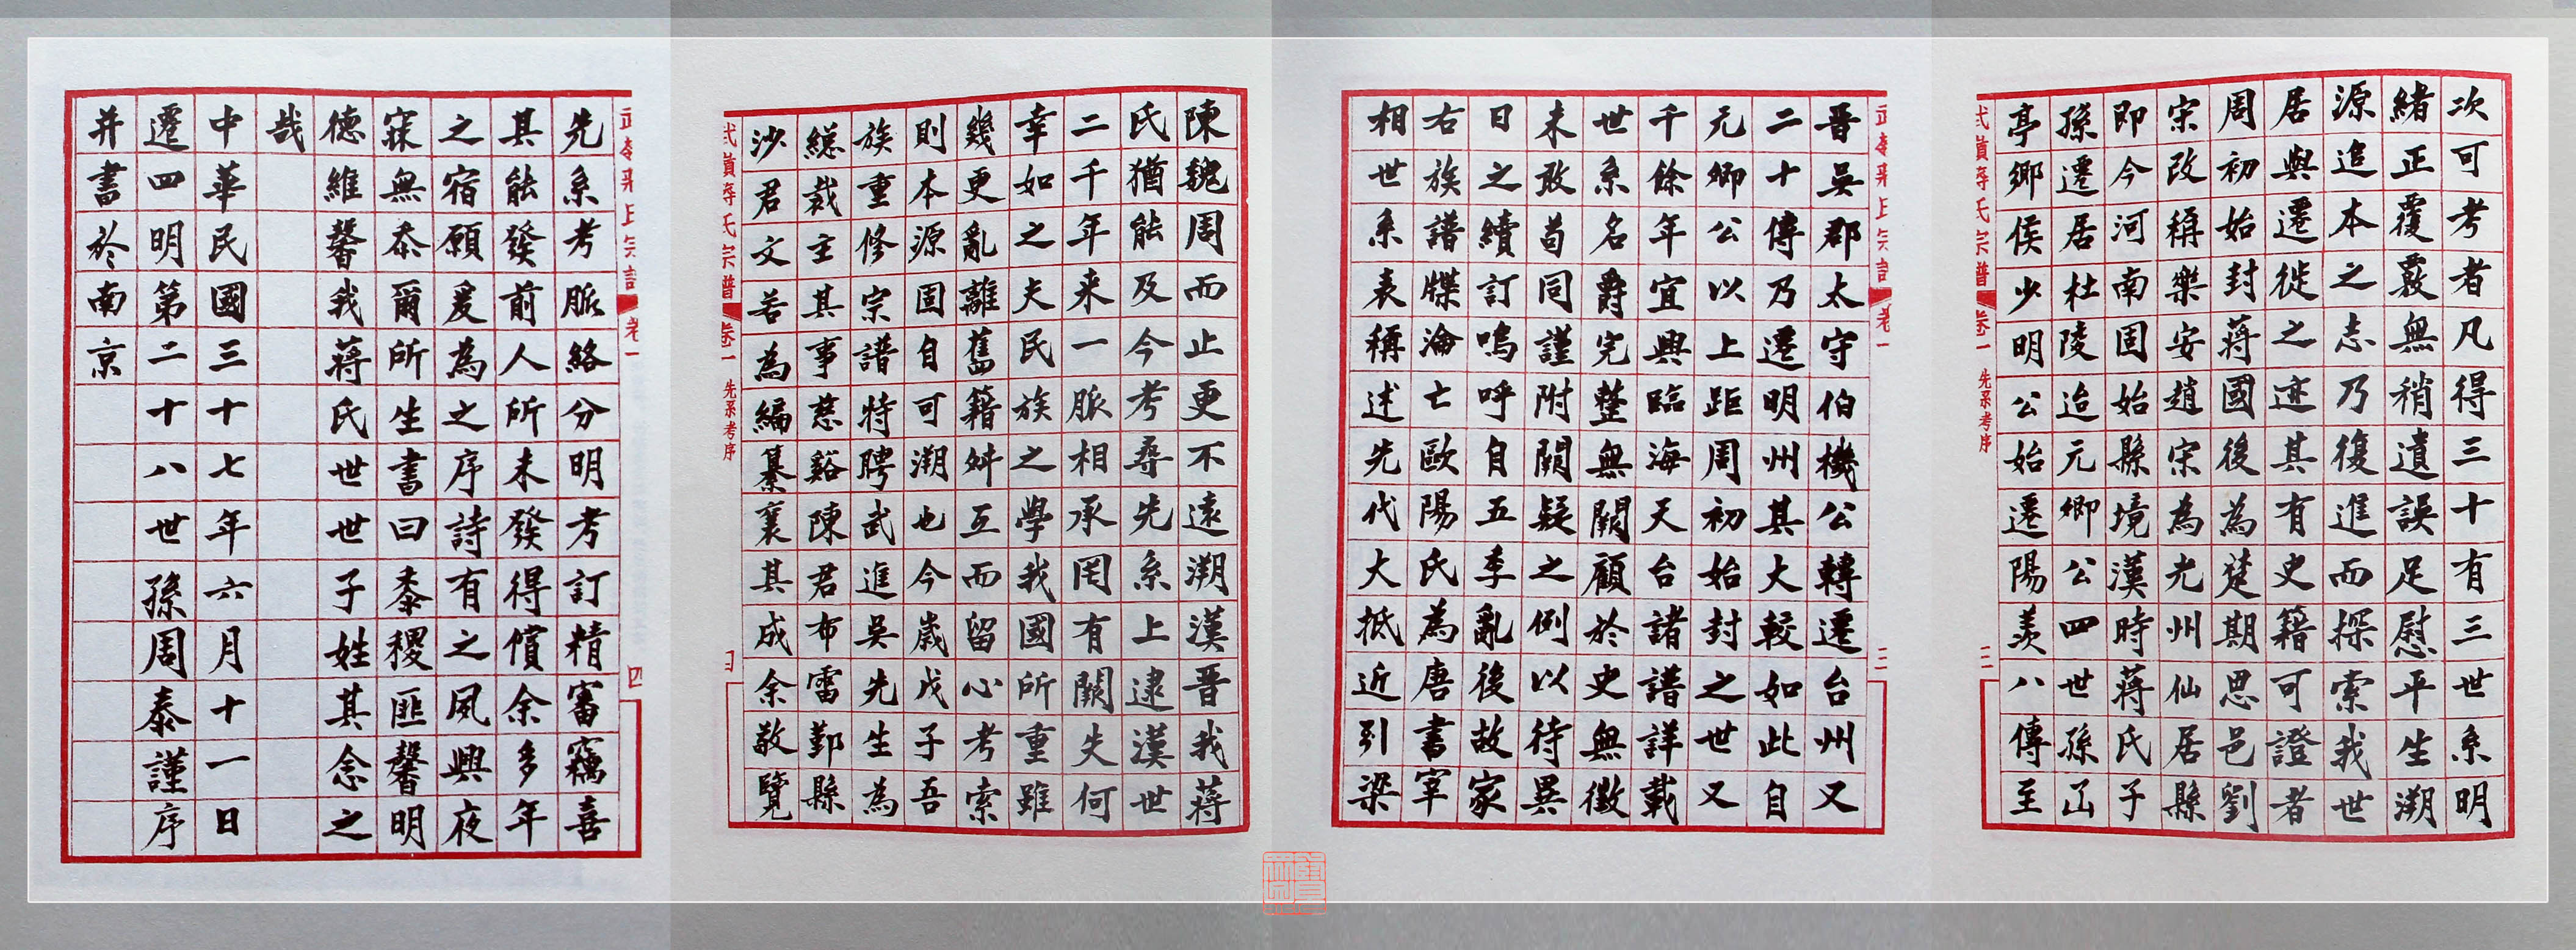 次可考者凡得三十有三世系明
緒正覆覈無稍遺誤足慰平生溯
源追本之志乃復進而探索我世
居與遷徙之迹其有史籍可證者
周初始封蔣國後為楚期思邑劉
宋改稱樂安趙宋為光州仙居縣
即今河南固始縣境漢時蔣氏子
孫遷居杜陵迨元卿公四世孫
亭鄉侯少明公始遷陽羨八傳至
武嶺蔣氏宗譜 卷一 先系考序 三
晉吳郡太守伯機公轉遷台州又
二十傳乃遷明州其大較如此自
元卿公以上距周初始封之世又
千餘年宜興臨海天台諸譜詳載
世系名爵完整無闕顧於史無徵
未敢苟同謹附闕疑之例以待異
日之續訂嗚呼自五季亂後故家
右族譜牒淪亡歐陽氏為唐書宰
相世系表稱述先代大抵近引梁
陳魏周而止更不遠溯漢晉我蔣
氏猶能及今考尋先系上逮漢世
二千年來一脈相承罔有闕失何
幸如之夫民族之學我國所重雖
幾更亂離舊籍舛互而留心考索
則本源固自可溯也今歲戊子吾
族重修宗譜特聘武進吳先生為
總裁主其事慈谿陳君布雷鄞縣
沙君文若為編纂襄其成余敬覽
武嶺蔣氏宗譜 卷一 先系考序 四
先系考脈絡分明考訂精審竊喜
其能發前人所未發得償余多年
之宿願爰為之序詩有之夙興夜
寐無忝爾所生書曰黍稷匪馨明
德維馨我蔣氏世世子姓其念之
哉
中華民國三十七年六月十一日
遷四明第二十八世孫周泰謹序
并書於南京